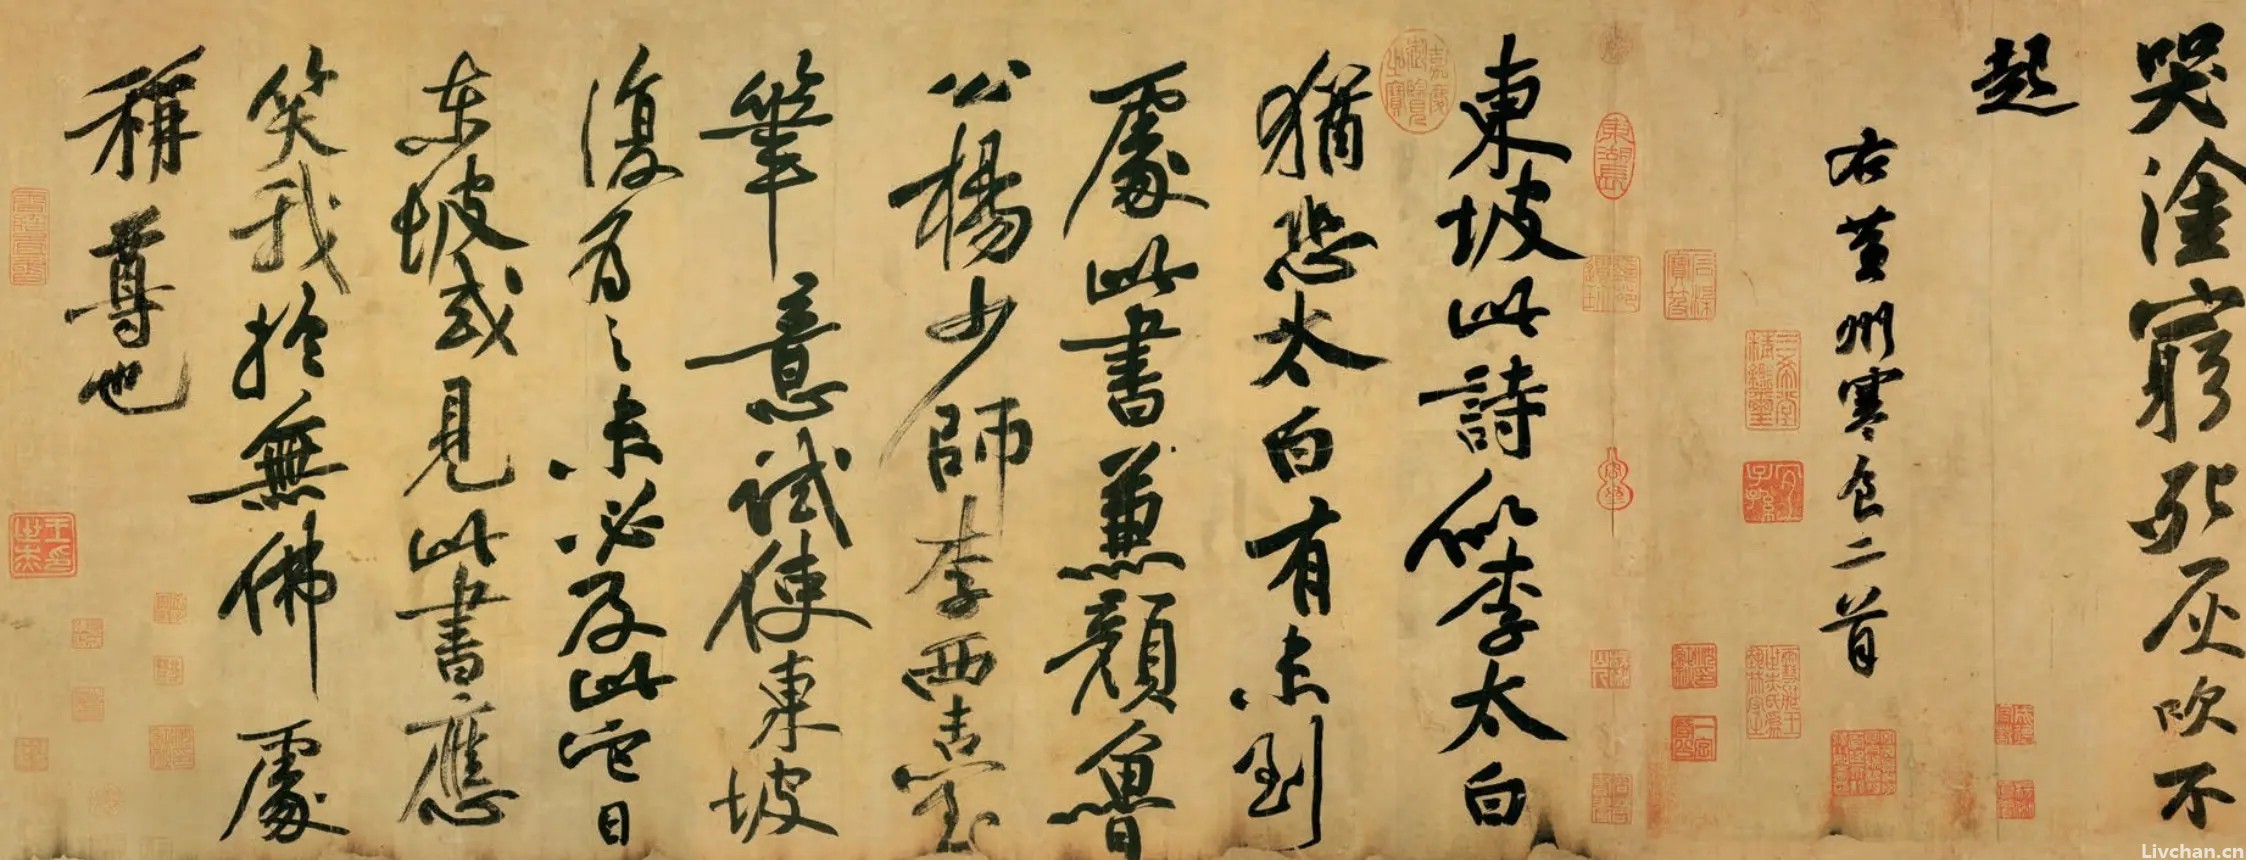 哭塗窮死灰吹不
起
右黃州寒食二首
東坡此詩似李太白
猶恐太白有未到
處此書兼顏魯
公楊少師李西臺
筆意試使東坡
復為之未必及此它日
东坡或見此書應
笑我於無佛處
稱尊也
Livchan.cn